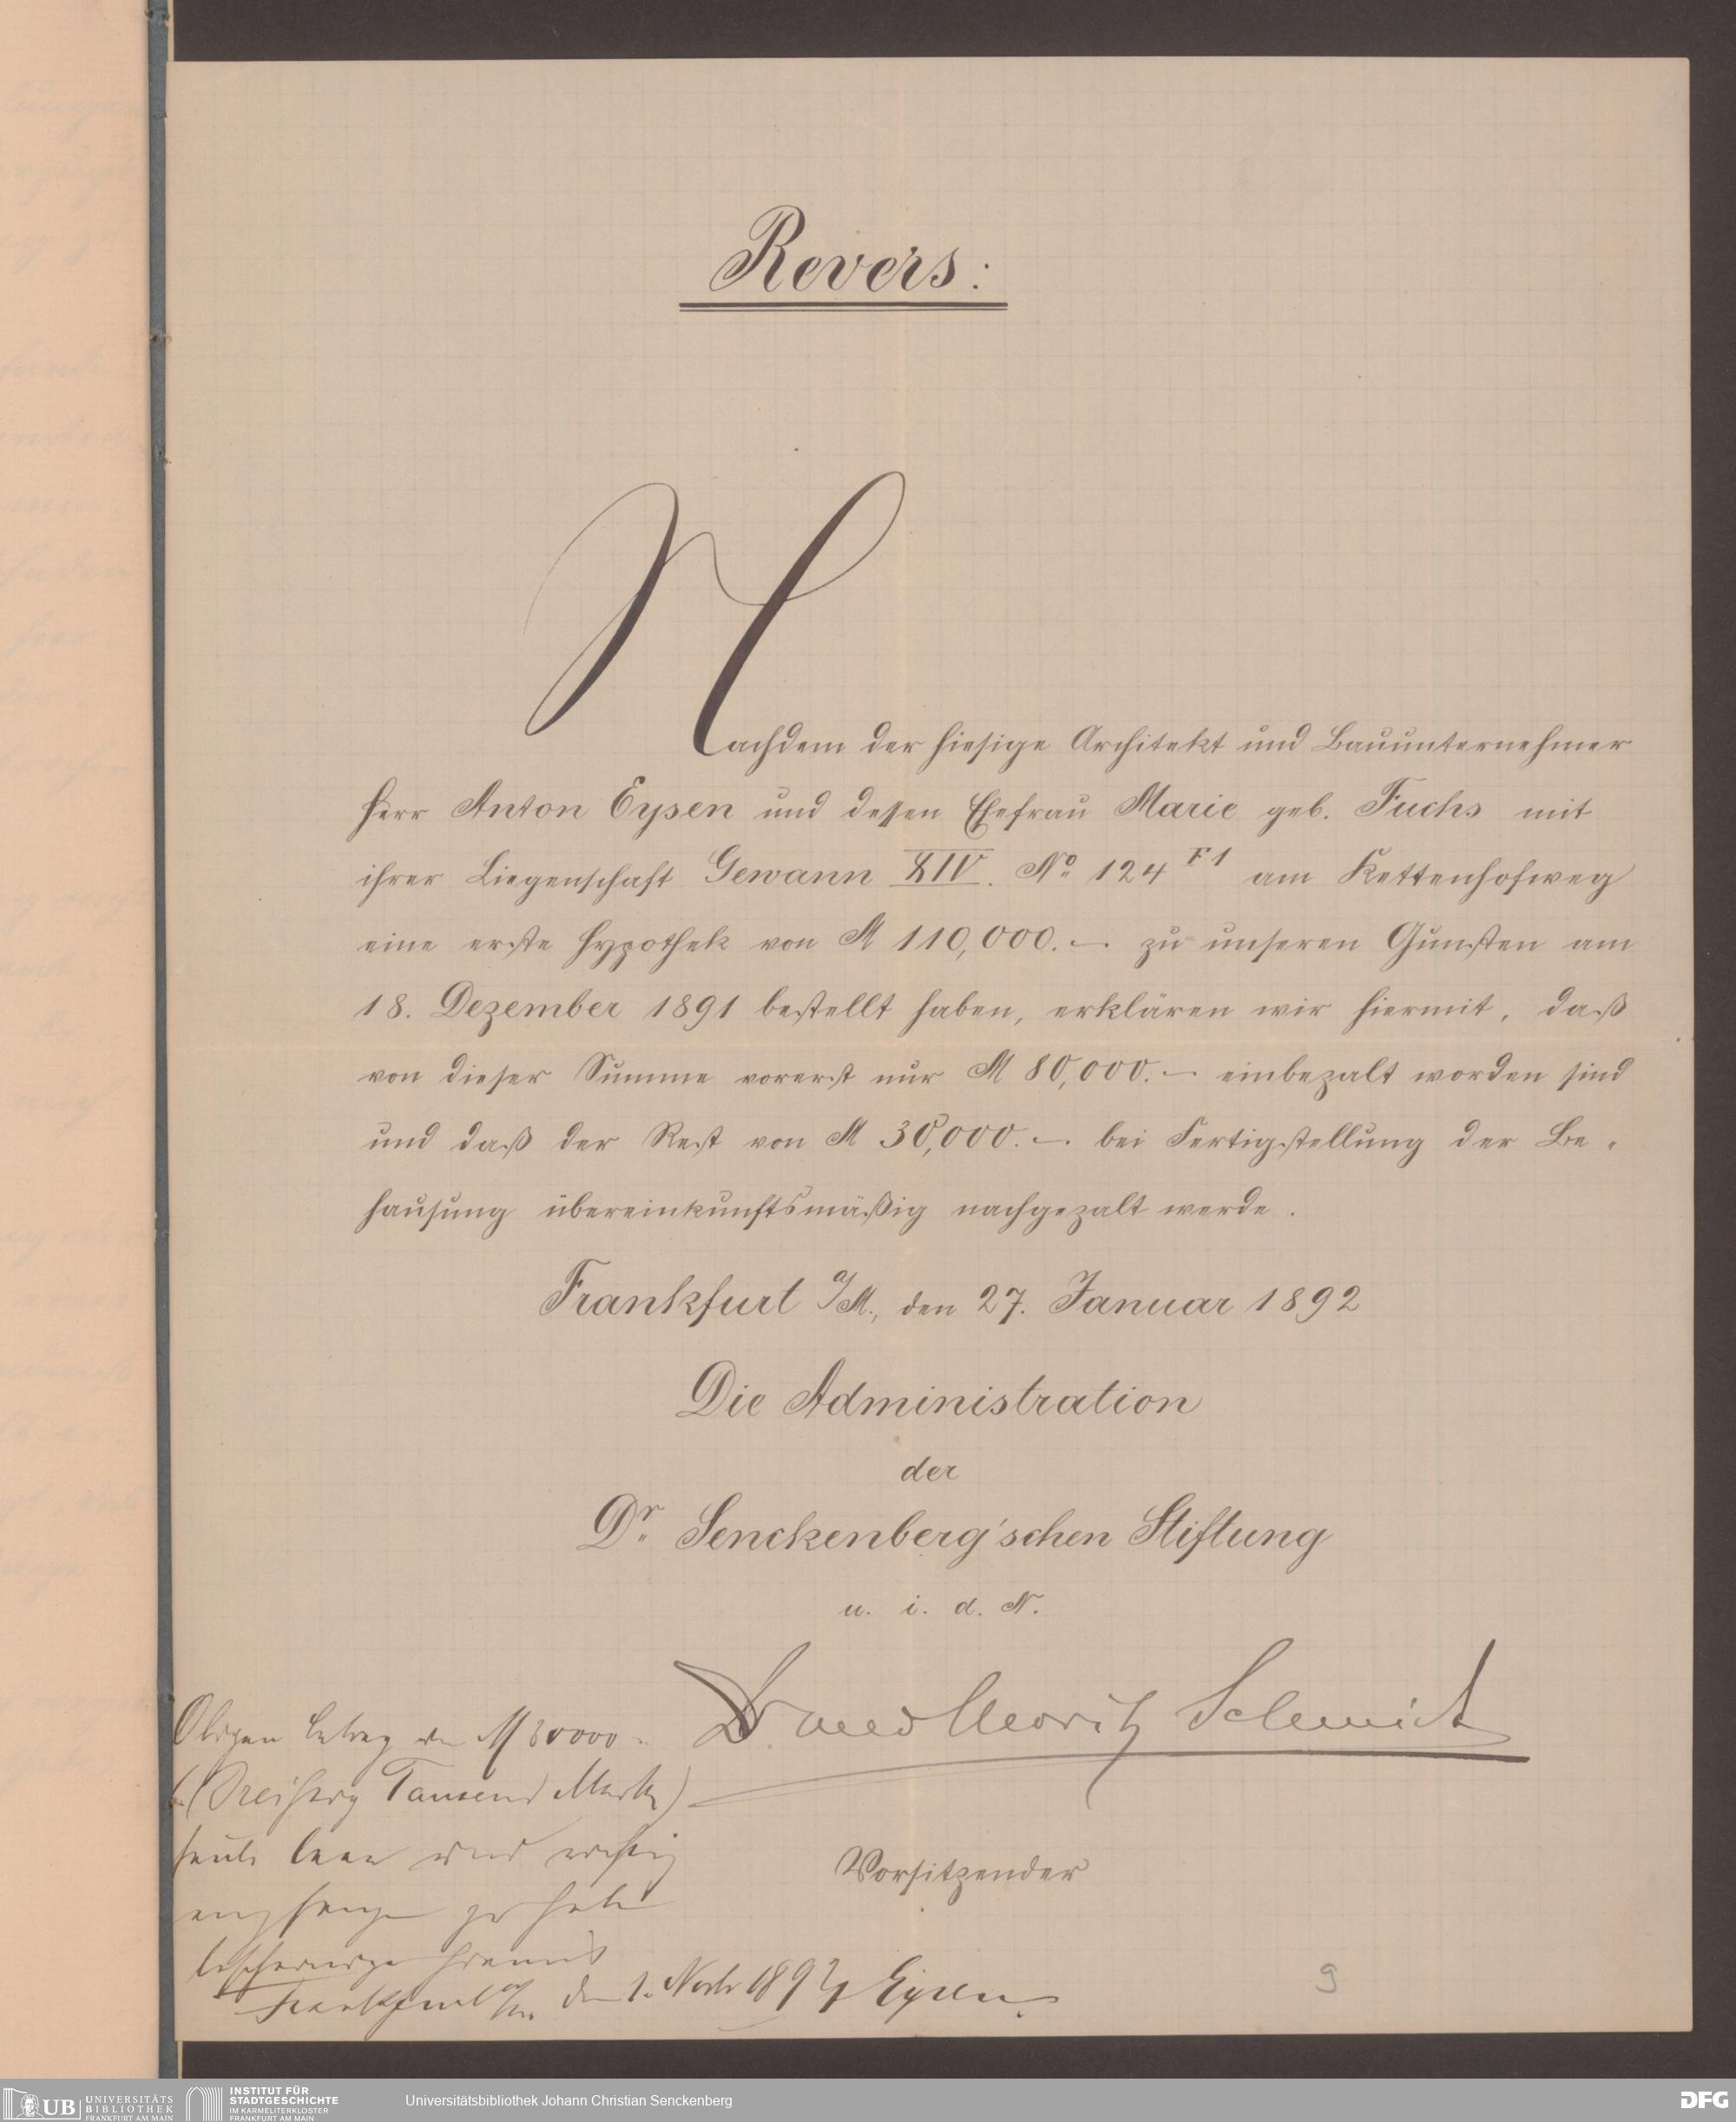 Revers:
Nachdem der hiesige Architekt und Bauunternehmer
Herr Anton Eysen und dessen Ehefrau Marie geb. Fuchs mit
ihrer Liegenschaft Gewann XIV. No 124 F1 am Kettenhofweg
eine erste Hypothek von M 110,000.— zu unseren Gunsten am
18. Dezember 1891 bestellt haben, erklären wir hiermit, daß
von dieser Summe vorerst nur M 80,000.— einbezalt worden sind
und daß der Rest von M 30,000.—. bei Fertigstellung der Be-
hausung übereinkunftsmäßig nachgezalt werde.
Frankfurt a/M., den 27. Januar 1892
Die Administration
der
Dr. Senckenberg'schen Stiftung
u. i. d. N.
Dr. med Moritz Schmidt
Vorsitzender
Obigen Betrag von M 30000.
(Dreißig Tausend Mark)
heute baar und richtig
empfangen zu haben
bescheinige hiermit
Frankfurt a/m. den 1. Novbr 1892 Eysen.
9
UB UNIVERSITÄTS
BIBLIOTHEK
FRANKFURT AM MAIN
INSTITUT FÜR
STADTGESCHICHTE
IM KARMELITERKLOSTER
FRANKFURT AM MAIN
Universitätsbibliothek Johann Christian Senckenberg
DFG